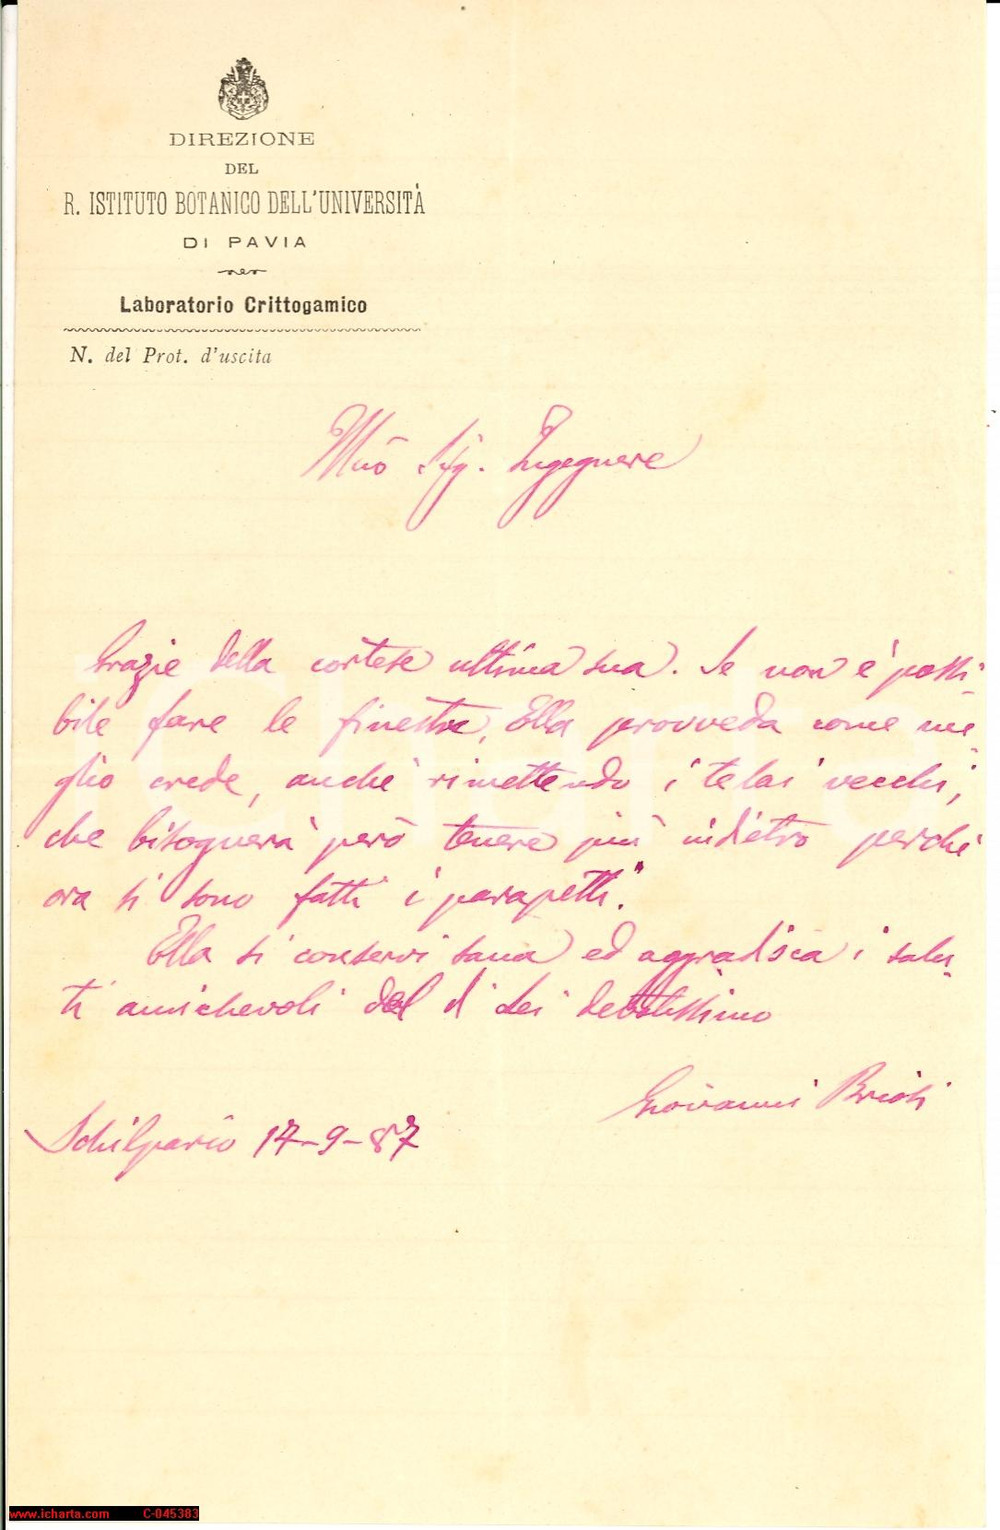 DIREZIONE
DEL
R. ISTITUTO BOTANICO DELL'UNIVERSITÀ
DI PAVIA
Laboratorio Crittogamico
N. del Prot. d'uscita
Illmo Sig. Ingegnere
Grazie della cortese ultima sua. Se non è possi-
bile fare le finestre, Ella provveda come me-
glio crede, anche rimettendo i telai vecchi,
che bisognerà però tenere più indietro perchè
ora si sono fatti i parapetti.
Ella si conservi sana ed aggradisca i salu-
ti amichevoli del di Lei devotissimo
Giovanni Briosi
Schilpario 17-9-87
iCharta
www.icharta.com C-045383